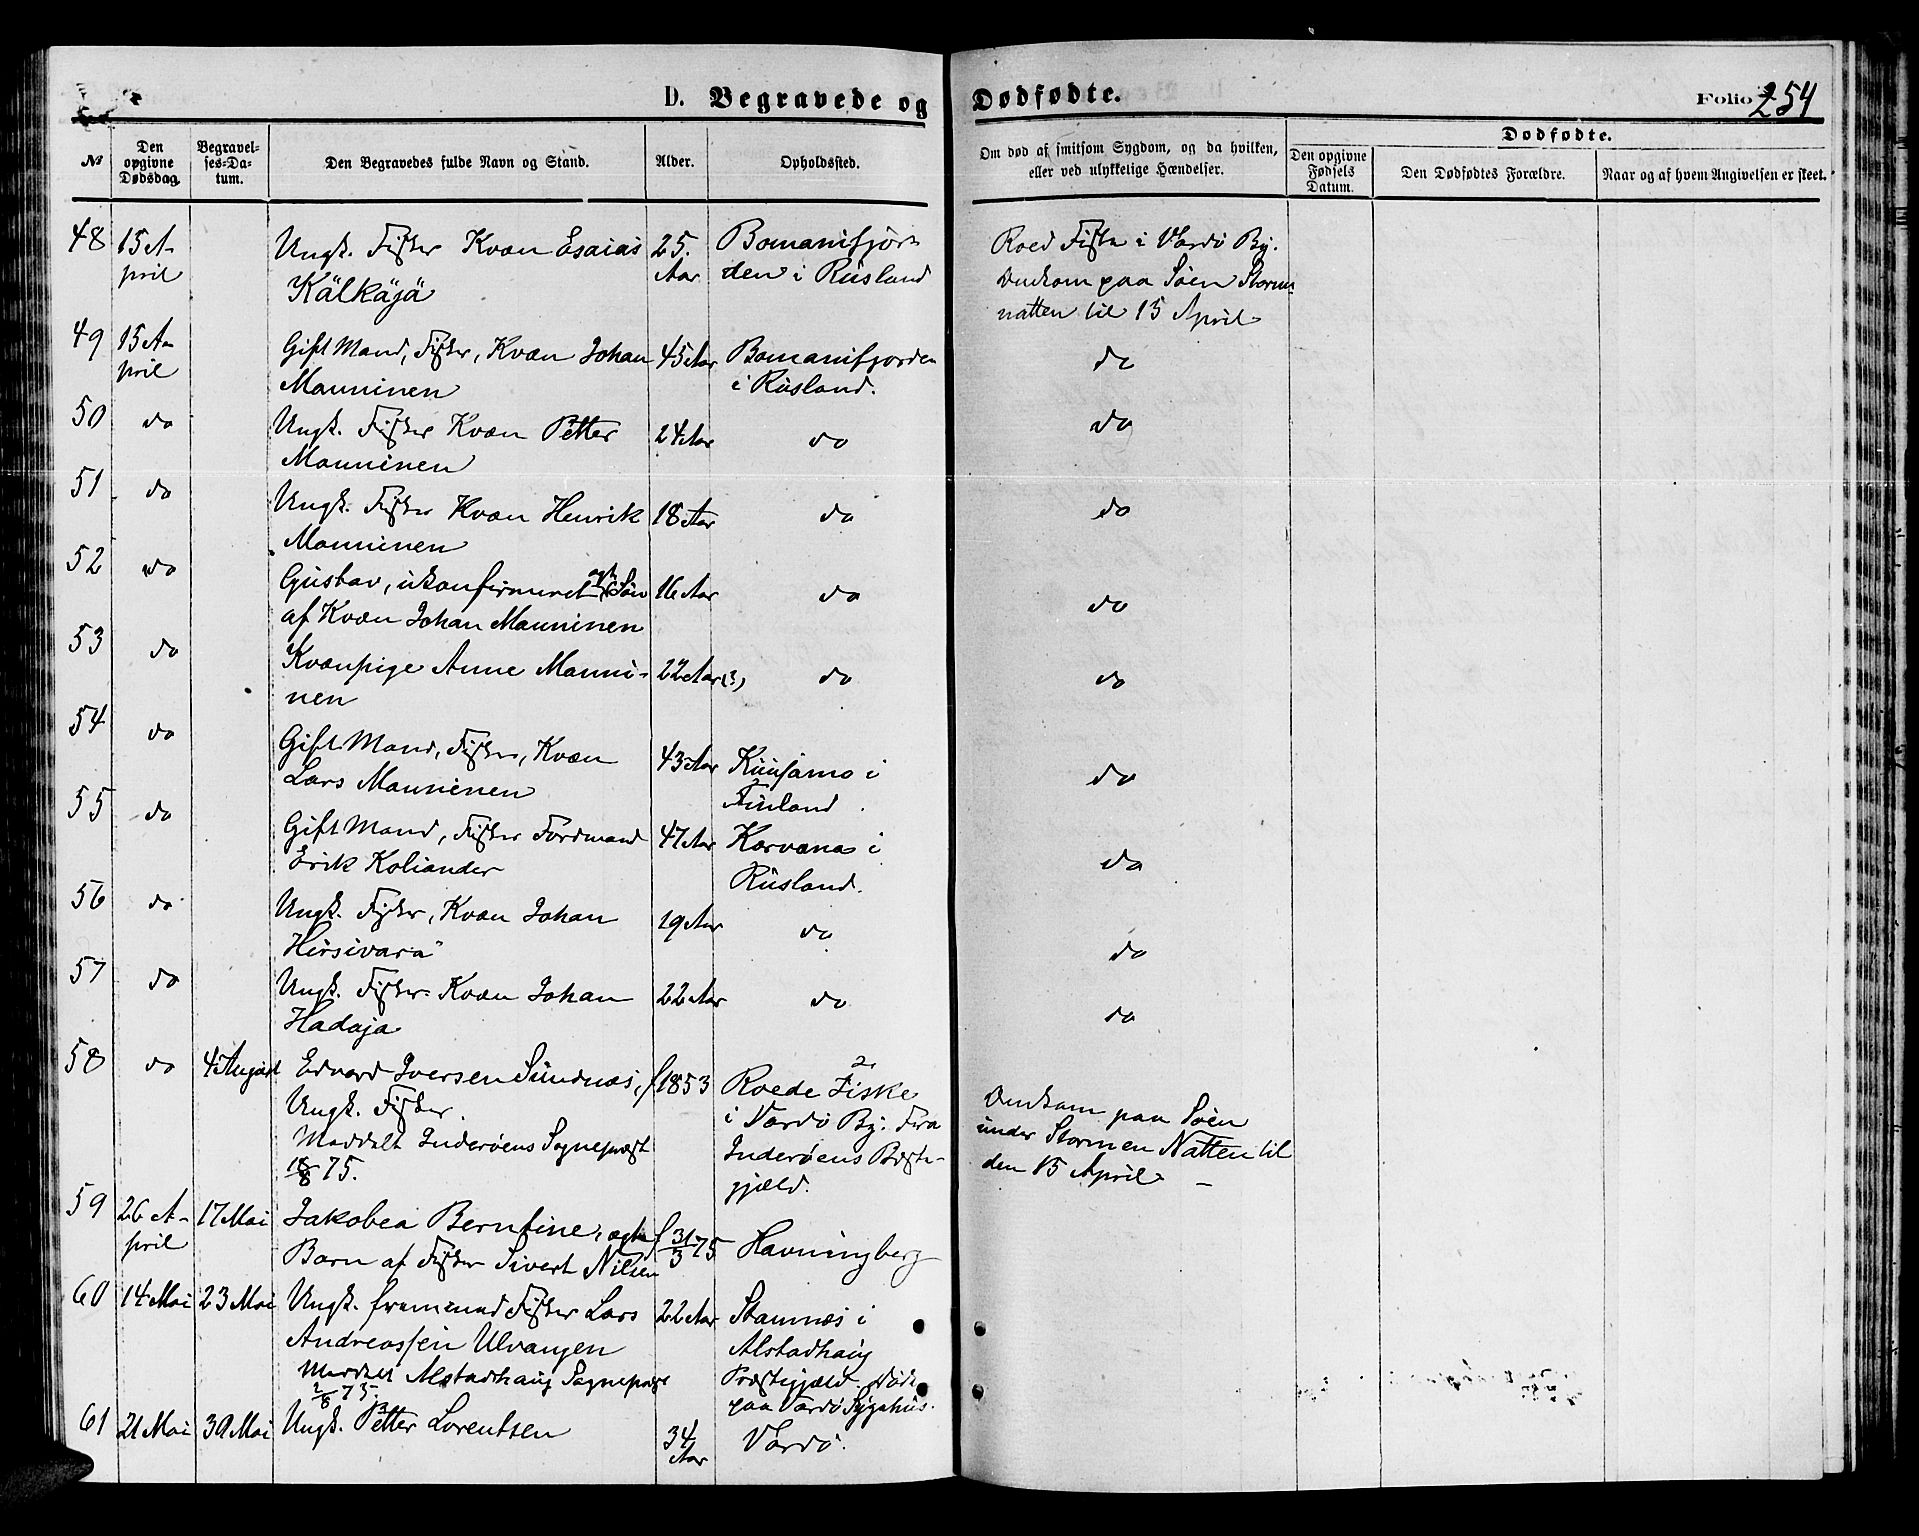 D. Begravede og Dødfødte.
Folio 254
№
Den opgivne Dødsdag.
Begravelses-Datum.
Den Begravedes fulde Navn og Stand.
Alder.
Opholdssted.
Om død af smitsom Sygdom, og da hvilken,
eller ved ulykkelige Hændelser.
Dødfødte.
Den opgivne Fødsels Datum.
Den Dødfødtes Forældre.
Naar og af hvem Angivelsen er skeet.
48 15 A- Ungk. Fisker Kvæn Esaias 25. Bomanifjor- Roed Fiske i Vardø By.
pril Kälkäjä Aar den i Rusland Omkom paa Søen Storm
natten til 15 April
49 15 A- Gift Mand, Fisker, Kvæn Johan 45 Aar Bomanifjorden do
pril Manninen i Rusland.
50 do Ungk. Fisker Kvæn Petter 24 Aar do do
Manninen
51 do Ungk. Fisker Kvæn Henrik 18 Aar do do
Manninen
52 do Gustav, ukonfirmeret ægte Søn 16 Aar do do
af Kvæn Johan Manninen
53 do Kvænpige Anne Manni- 22 Aar (?) do do
nen
54 do Gift Mand, Fisker, Kvæn 43 Aar Kuusamo i do
Lars Manninen Finland.
55 do Gift Mand, Fisker Nordmand 47 Aar Korvanæs i do
Erik Koliander Rusland.
56 do Ungk. Fisker, Kvæn Johan 19 Aar do do
Hirsivara
57 do Ungk. Fisker Kvæn Johan 22 Aar do do
Hadaja
58 do 4 August Edvard Iversen Sundnæs, f 1853 Roede Fiske Omkom paa Søen
Ungk. Fisker. i Vardø By. Fra under Stormen Natten til
Meddelt Inderøens Sognepræst Inderøens Præste- den 15 April –
18/8 75. gjæld.
59 26 A- 17 Mai Jakobea Berntine, ægte f 31/3 75 Havningberg
pril Barn af Fisker Sivert Nilsen
60 14 Mai 23 Mai Ungk. fremmed Fisker Lars 22 Aar Stamnæs i
Andreassen Ulvangen Alstadhaug
Meddelt Alstadhaug Sognepræst Præstegjæld. Døde
2/8 75. paa Vardø Sygehus.
61 21 Mai 30 Mai Ungk. Petter Lorentsen 34 Vardø.
Aar